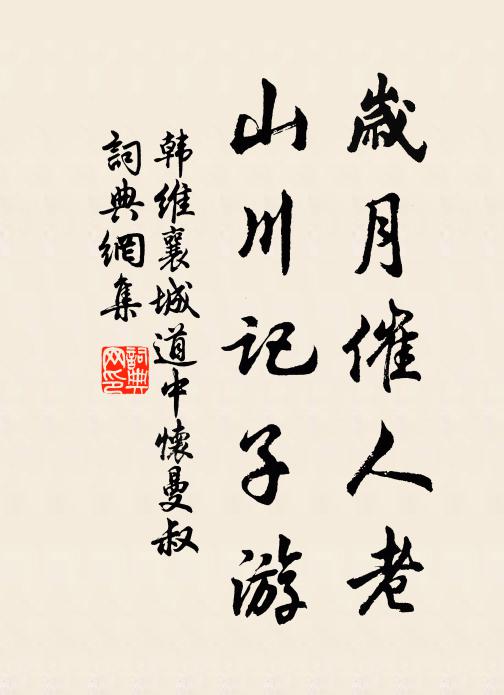 歲月催人老
山川記子游
韩維襄城道中懷曼叔
詞典網集
詞典网印